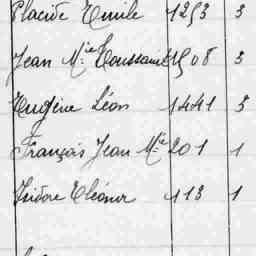 Placide Emile 1253 3
Jean Mie Toussaint 1508 3
Eugène Léon 1441 3
François Jean Mie 201 1
Isidore Eléonor 113 1